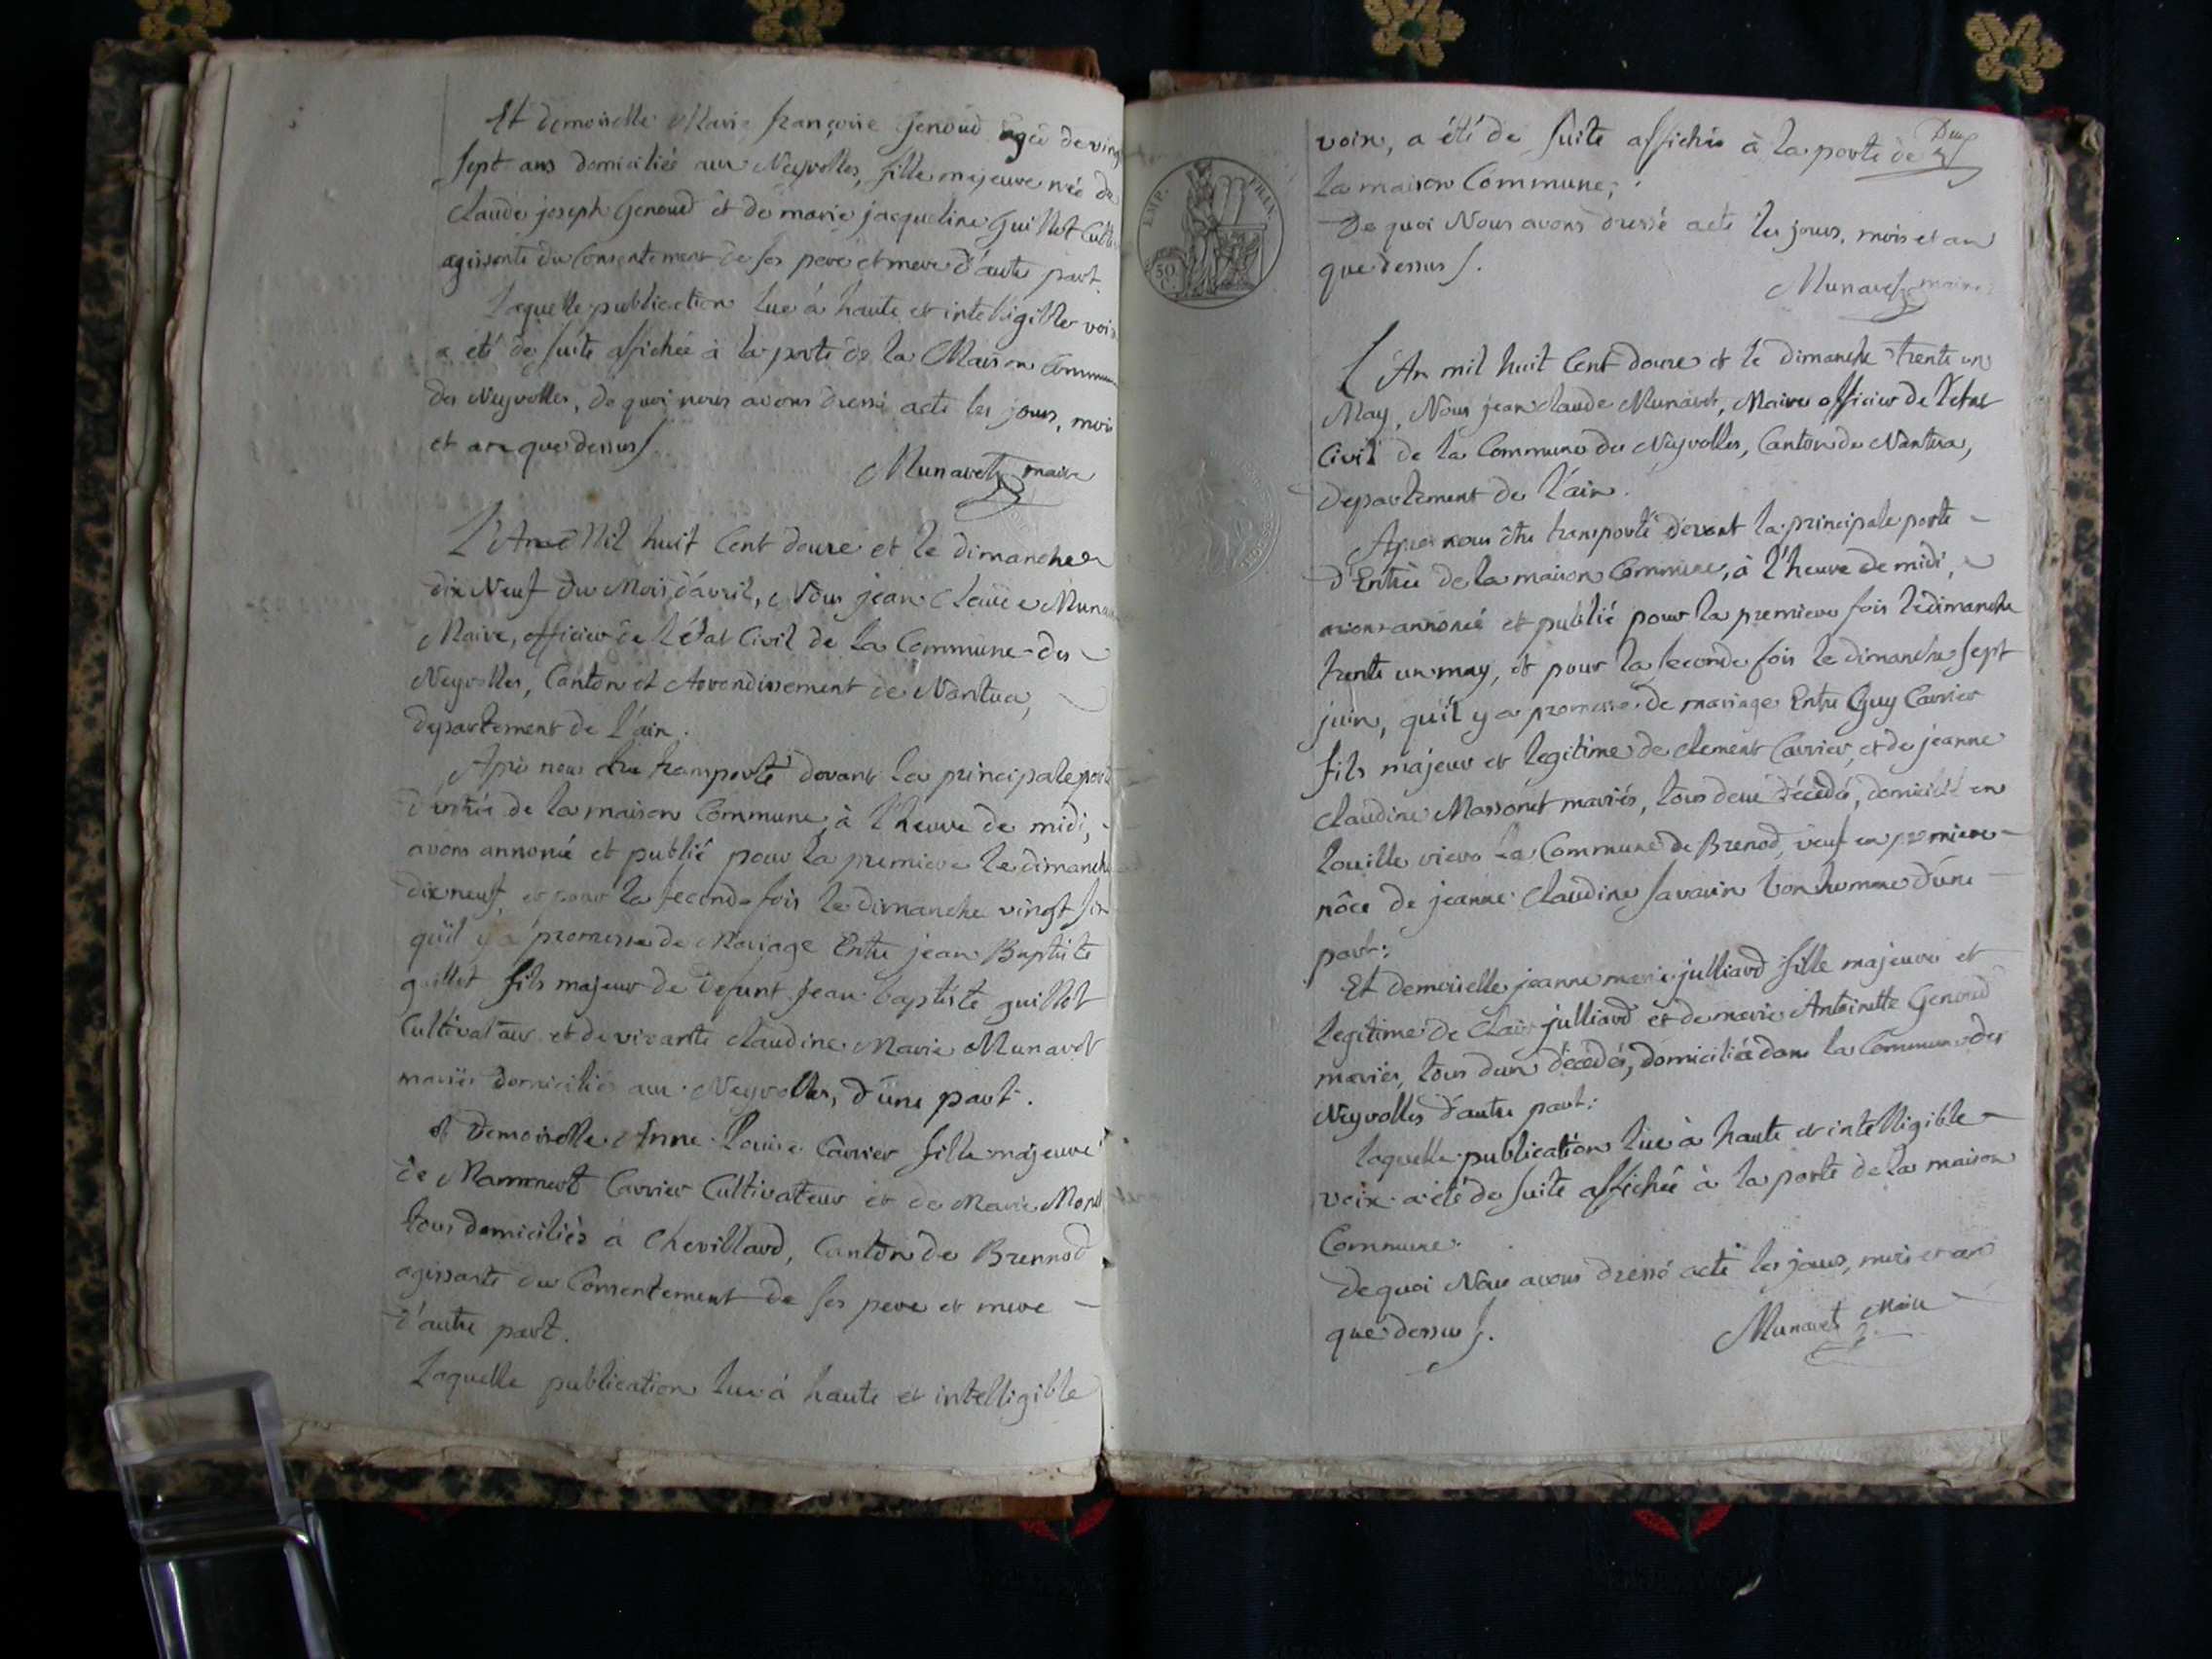 Et demoiselle Marie françoise Genoud agée de ving
sept ans domiciliée aux Neyrolles, fille majeure née de
Claude joseph Genoud et de marie jacqueline Guillot Culti
agissante du Consentement de ses pere et mere d'autre part.
Laquelle publication lue à haute et intelligible voix
a été de suite afichée à la porte de la Maison Commune
des Neyrolles, de quoi nous avons dressé acte les jours, mois
et an que dessus
Munaret maire
L'An Mil huit Cent douze et le dimanche
dix Neuf du Mois d'avril, Nous jean Claude Munaret
Maire, officier de l'état Civil de la Commune des
Neyrolles, Canton et Arrondissement de Nantua,
departement de l'ain.
Après nous être transporté devant la principale porte
d'entrée de la maison Commune, à l'heure de midi,
avons annoncé et publié pour la premiere le dimanche
dix neuf, et pour la seconde fois le dimanche vingt six
qu'il y a promesse de Mariage Entre jean Baptiste
guillot fils majeur de defunt jean baptiste guillot
Cultivateur et de vivante claudine Marie Munaret
mariés domiciliés aux Neyrolles, d'une part.
et Demoiselle Anne Louise Carrier fille majeure
de Mammert Carrier Cultivateur et de Marie Morel
tous domiciliés à Chevillard, Canton de Brennod
agissante du Consentement de ses pere et mere
d'autre part.
Laquelle publication lue à haute et intelligible
voix, a été de suite affichée à la porte de
la maison Commune;
De quoi Nous avons dressé acte les jours, mois et an
que dessus
Munaret maire
EMP. FRAN.
50 C.
L'An mil huit Cent douze et le dimanche trente un
May, Nous jean claude Munaret, Maire officier de l'etat
Civil de la Commune des Neyrolles, Canton de Nantua,
Departement de l'ain.
Après nous être transporté devant la principale porte
d'Entrée de la maison Commune, à l'heure de midi,
avons annoncé et publié pour la premiere fois le dimanche
trente un may, et pour la seconde fois le dimanche sept
juin, qu'il y a promesse de mariage Entre Guy Carrier
fils majeur et legitime de clement Carrier, et de jeanne
claudine Massonet mariés, tous deux décédés, domicilié en
Louille riere La Commune de Brenod, veuf en premiere
nôce de jeanne Claudine savarin bonhomme d'une
part;
Et demoiselle jeanne marie julliard fille majeure et
legitime de Clair julliard et de marie Antoinette Genoud
mariés, tous deux décédés, domiciliée dans la Commune des
Neyrolles d'autre part;
laquelle publication lue à haute et intelligible
voix a été de suite affichée à la porte de la maison
Commune.
De quoi Nous avons dressé acte les jours, mois et an
que dessus
Munaret Maire